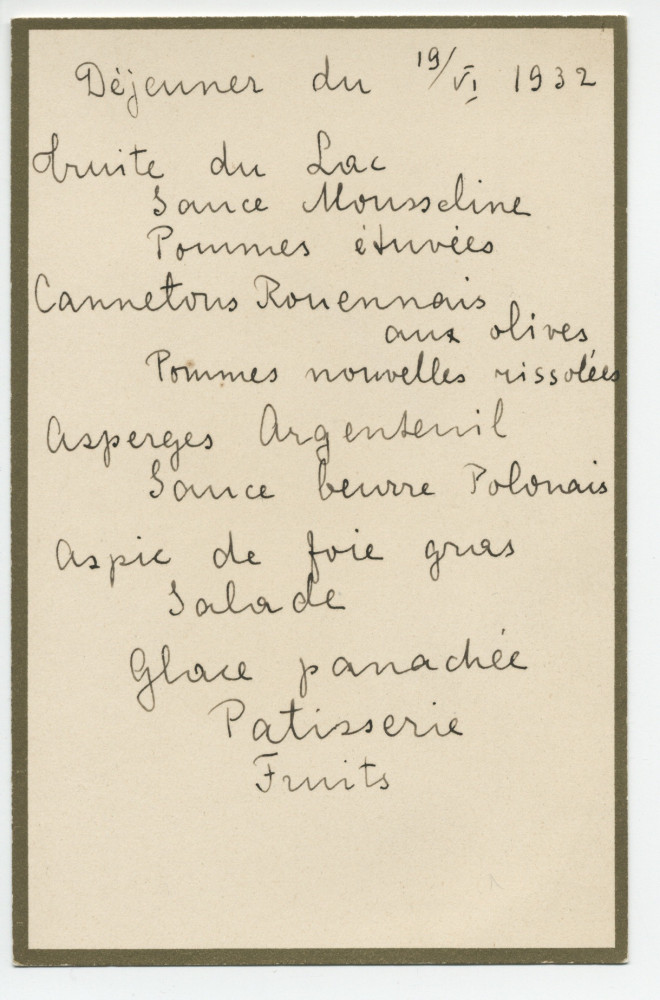 Déjeuner du 19/VI 1932
Truite du Lac
Sauce Mousseline
Pommes étuvées
Cannetons Rouennais
aux olives
Pommes nouvelles rissolées
Asperges Argenteuil
Sauce beurre Polonais
Aspic de foie gras
Salade
Glace panachée
Patisserie
Fruits